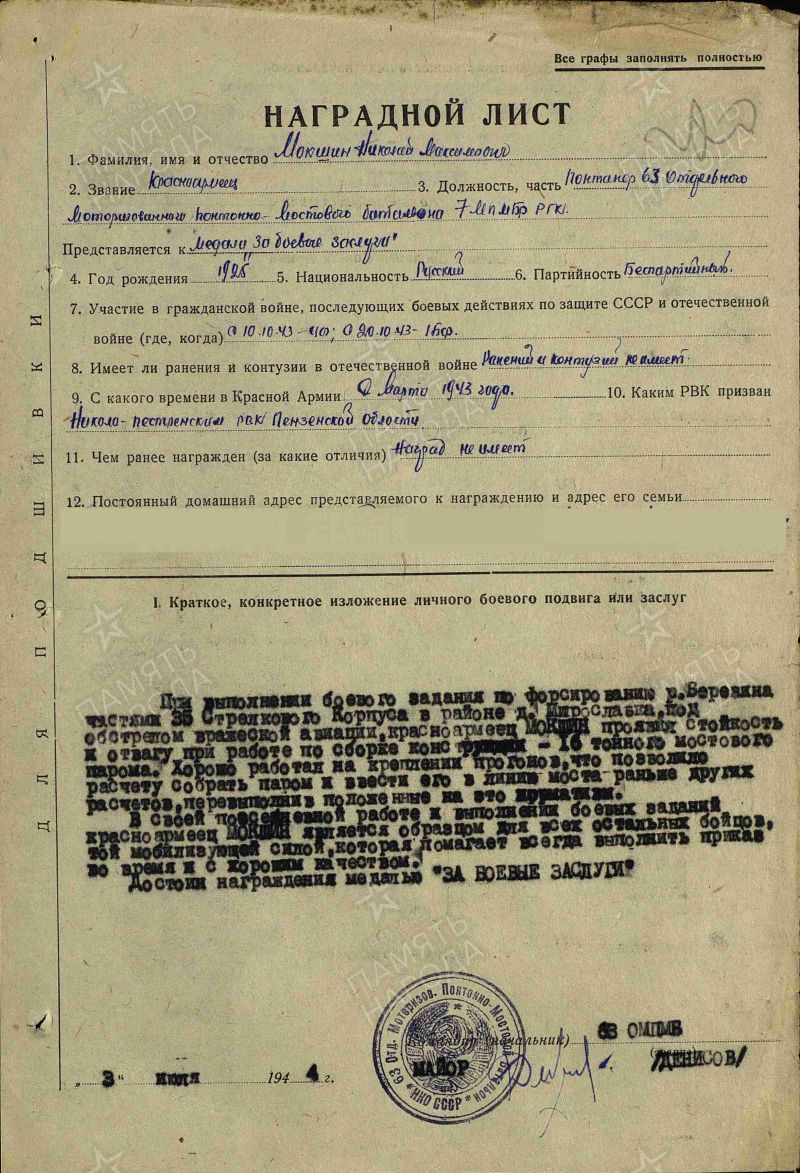 Все графы заполнять полностью
НАГРАДНОЙ ЛИСТ
1. Фамилия, имя и отчество Мокшин Николай Максимович
2. Звание Красноармеец 3. Должность, часть Понтанер 63 Отдельного
Моторизованного понтонно-мостового батальона 7 МПМБР РГК.
Представляется к медали "За боевые заслуги"
4. Год рождения 1925 5. Национальность Русский 6. Партийность Беспартийный.
7. Участие в гражданской войне, последующих боевых действиях по защите СССР и отечественной
войне (где, когда) С 10.10.43 – ЦФ; С 20.10.43 – 1БФ.
8. Имеет ли ранения и контузии в отечественной войне Ранений и контузий не имеет.
9. С какого времени в Красной Армии С Марта 1943 года. 10. Каким РВК призван
Николо-пестренским РВК Пензенской Области
11. Чем ранее награжден (за какие отличия) Наград не имеет
12. Постоянный домашний адрес представляемого к награждению и адрес его семьи
I. Краткое, конкретное изложение личного боевого подвига или заслуг
При выполнении боевого задания по форсированию р.Березина
частями 35 Стрелкового Корпуса в районе д. Мирославка, под
обстрелом вражеской авиации, красноармеец МОКШИН проявил стойкость
и отвагу при работе по сборке конструкции - 16 тонного мостового
парома. Хорошо работал на креплении прогонов, что позволило
расчету собрать паром и ввести его в линию моста раньше других
расчетов, перевыполнив положенные на это нормативы.
В своей повседневной работе и выполнении боевых заданий
красноармеец МОКШИН является образцом для всех остальных бойцов,
той мобилизующей силой, которая помагает всегда выполнить приказ
во время и с хорошим качеством.
Достоин награждения медалью "ЗА БОЕВЫЕ ЗАСЛУГИ"
Командир (начальник) 63 ОМПМБ
МАЙОР /ДЕНИСОВ/
„3" июля 1944 г.
63 Отд. Моторизов. Понтонно-Мостовой Батальон
НКО СССР
ДЛЯ ПОДШИВКИ
ПАМЯТЬ НАРОДА